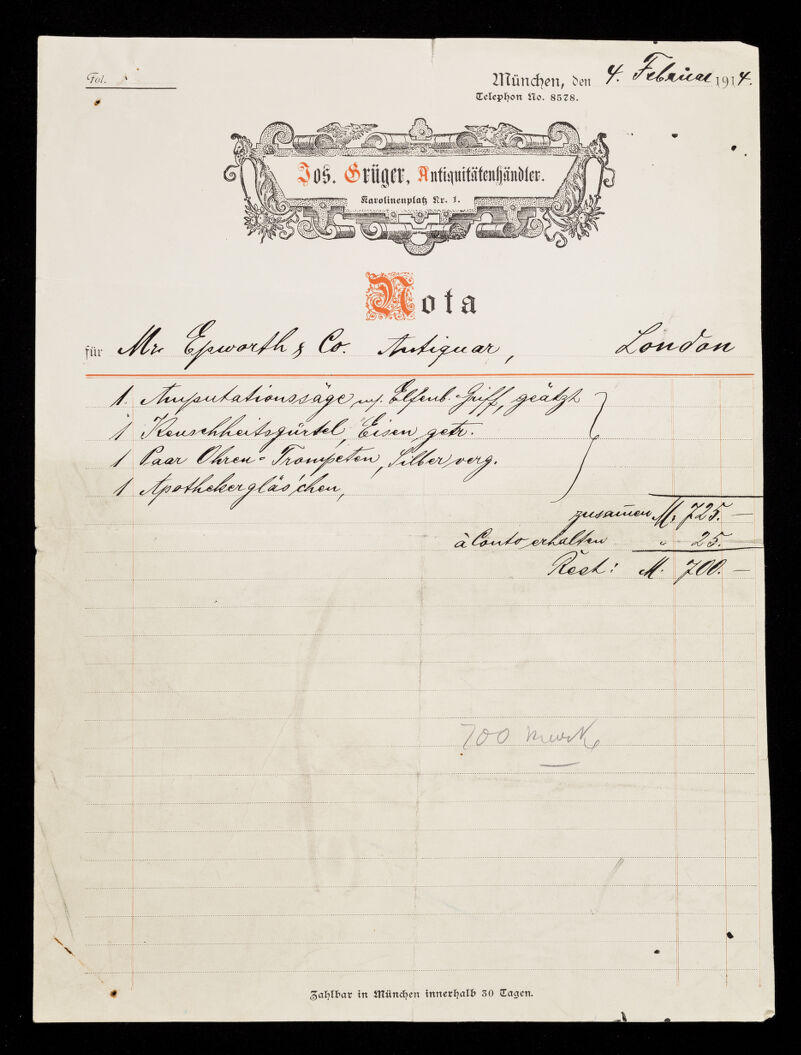 Fol.
München, den 4. Februar 1914.
Telephon No. 8578.
Jos. Grüger, Antiquitätenhändler.
Karolinenplatz Nr. 1.
Nota
für Mr. Epworth & Co. Antiquar, London
1. Amputationssäge m/. Elfenb. Griff, geätzt
1 Keuschheitsgürtel, Eisen getr.
1 Paar Ohren-Trompeten, Silber verg.
1 Apothekergläs'chen,
zusam̅en M. 725. —
à Conto erhalten " 25. —
Rest: M. 700. —
700 Mark
Zahlbar in München innerhalb 30 Tagen.